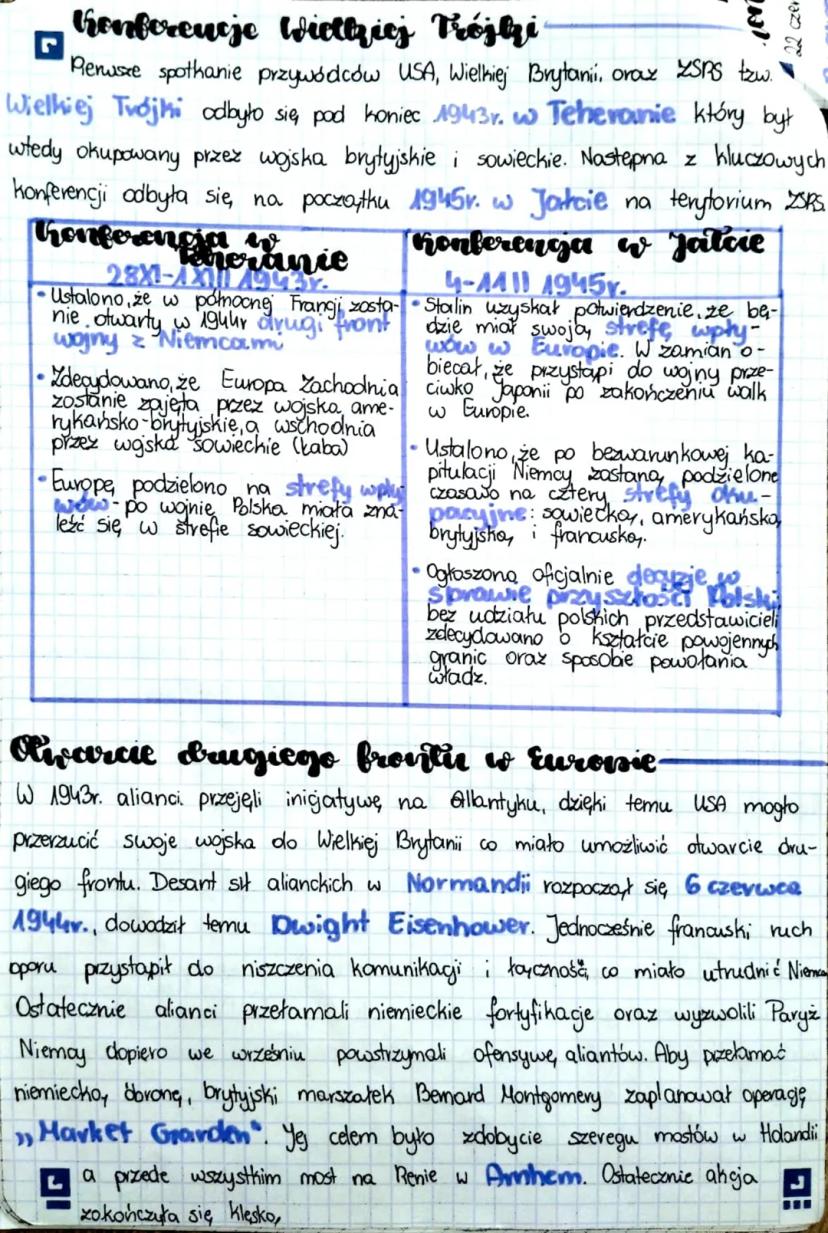 Konferencje Wielkiej Trójki
22 cze
Pierwsze spotkanie przywódców USA, Wielkiej Brytanii, oraz ZSRS tzw.
Wielkiej Trójki odbyło się pod koniec 1943r. w Teheranie który był
wtedy okupowany przez wojska brytyjskie i sowieckie. Następna z kluczowych
konferencji odbyła się na początku 1945r. w Jałcie na terytorium ZSRS.
Konferencja w
Teheranie
28XI-1XII 1943r.
• Ustalono, że w północnej Francji zosta-
nie otwarty w 1944r drugi front
wojny z Niemcami
• Zdecydowano, że Europa Zachodnia
zostanie zajęta przez wojska ame-
rykańsko-brytyjskie, a wschodnia
przez wojska sowieckie (Łaba)
• Europę podzielono na strefy wpły-
wów - po wojnie Polska miała zna-
leźć się w strefie sowieckiej.
Konferencja w Jałcie
4-11 II 1945r.
• Stalin uzyskał potwierdzenie, że bę-
dzie miał swoją strefę wpły-
wów w Europie. W zamian o-
biecał, że przystąpi do wojny prze-
ciwko Japonii po zakończeniu walk
w Europie.
• Ustalono, że po bezwarunkowej ka-
pitulacji Niemcy zostaną podzielone
czasowo na cztery strefy oku-
pacyjne: sowiecką, amerykańską,
brytyjską, i francuską.
• Ogłoszono oficjalnie decyzje w
sprawie przyszłości Polski
bez udziału polskich przedstawicieli
zdecydowano o kształcie powojennych
granic oraz sposobie powołania
władz.
Otwarcie drugiego frontu w Europie
W 1943r. alianci przejęli inicjatywę na Atlantyku, dzięki temu USA mogło
przerzucić swoje wojska do Wielkiej Brytanii co miało umożliwić otwarcie dru-
giego frontu. Desant sił alianckich w Normandii rozpoczął się 6 czerwca
1944r., dowodził temu Dwight Eisenhower. Jednocześnie francuski ruch
oporu przystąpił do niszczenia komunikacji i łączności, co miało utrudnić
Ostatecznie alianci przełamali niemieckie fortyfikacje oraz wyzwolili Paryż
Niemcy dopiero we wrześniu powstrzymali ofensywę aliantów. Aby przełamać
niemiecką obronę, brytyjski marszałek Bernard Montgomery zaplanował operację
„Market Garden". Jej celem było zdobycie szeregu mostów w Holandii
a przede wszystkim most na Renie w Arnhem. Ostatecznie akcja
zakończyła się klęską,